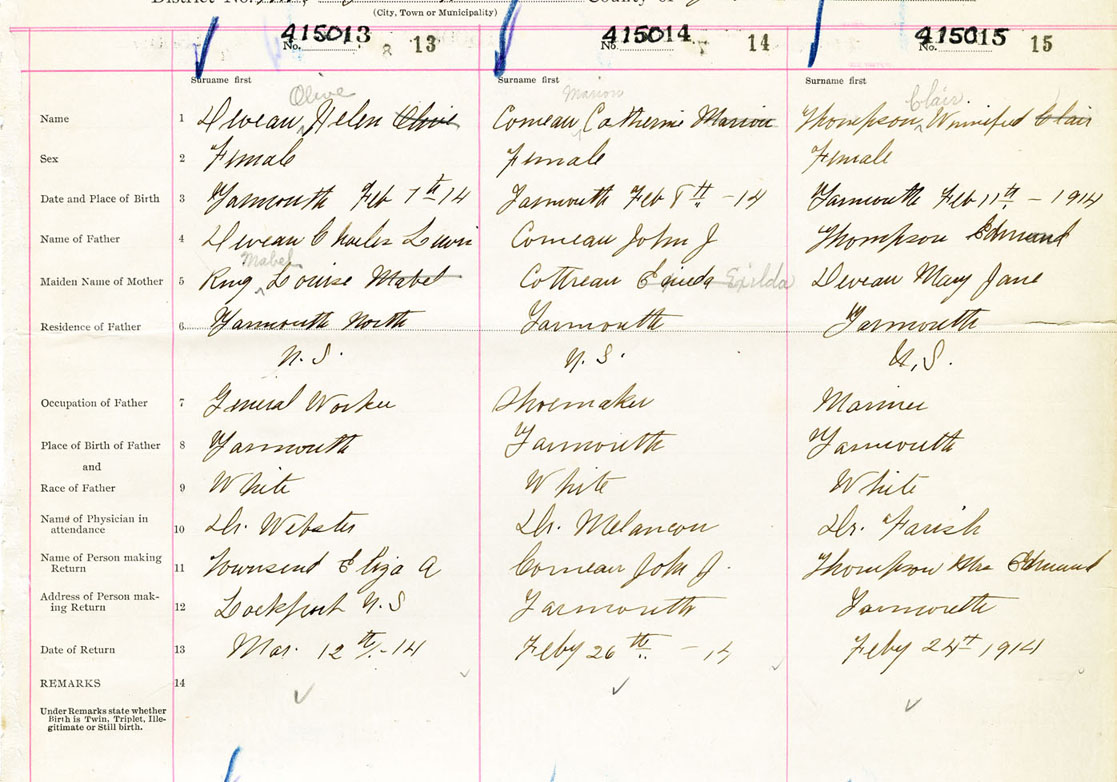 District No. County of
(City, Town or Municipality)
415013 415014 415015
No. 13 No. 14 No. 15
Surname first Surname first Surname first
Olive Marion Clair
Name 1 Deveau, Helen Olive Comeau, Catherine Marion Thompson, Winnifred Clair
Sex 2 Female Female Female
Date and Place of Birth 3 Yarmouth Feb 7th 14 Yarmouth Feb 8th - 14 Yarmouth Feb 11th - 1914
Name of Father 4 Deveau Charles Lewis Comeau John J Thompson Edmund
Mabel
Maiden Name of Mother 5 Ring Louise Mabel Cottreau Exilda Deveau Mary Jane
Residence of Father 6 Yarmouth North Yarmouth Yarmouth
N. S. N. S. N. S.
Occupation of Father 7 General Worker Shoemaker Mariner
Place of Birth of Father 8 Yarmouth Yarmouth Yarmouth
and
Race of Father 9 White White White
Name of Physician in
attendance 10 Dr. Webster Dr. Melancon Dr. Farish
Name of Person making
Return 11 Townsend Eliza A Comeau John J. Thompson Mrs Edmund
Address of Person mak-
ing Return 12 Lockport N.S Yarmouth Yarmouth
Date of Return 13 Mar. 12th - 14 Feby 26th - 14 Feby 24th 1914
REMARKS 14
Under Remarks state whether
Birth is Twin, Triplet, Ille-
gitimate or Still birth.